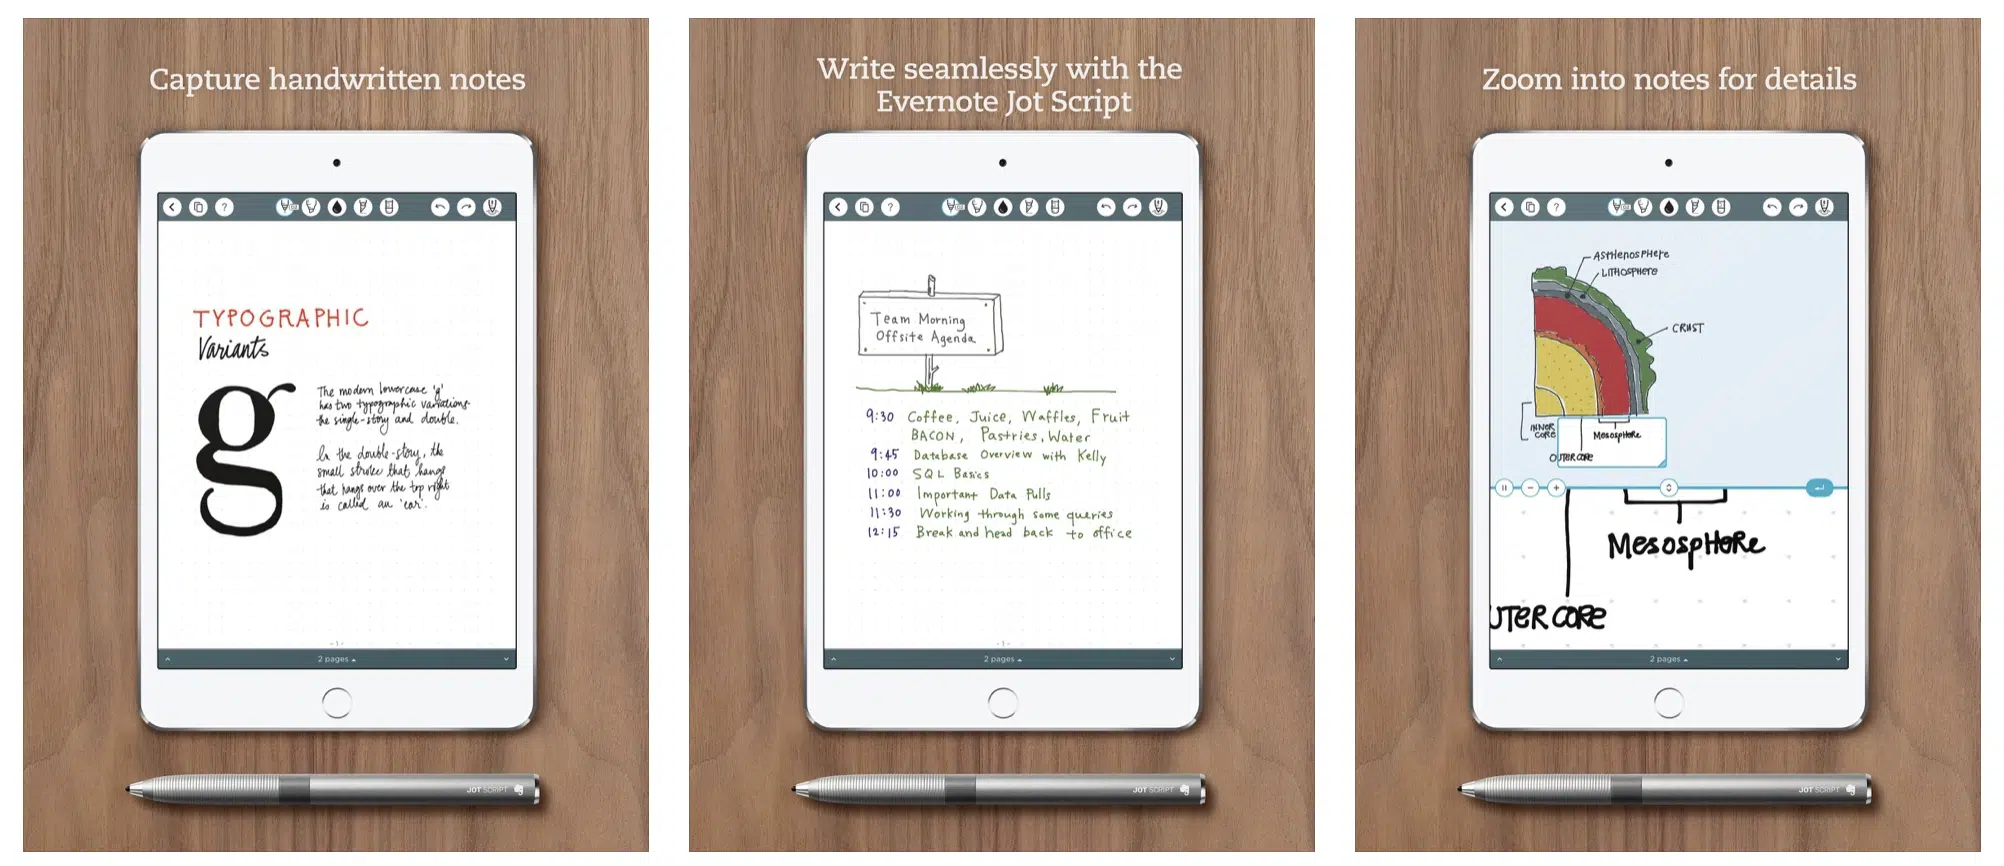 Capture handwritten notes
?
TYPOGRAPHIC
Variants
g
The modern lowercase 'g'
has two typographic variations
the single-story and double.
In the double-story, the
small stroke that hangs
that hangs over the top right
is called an 'ear'.
- 1 -
2 pages
JOT SCRIPT
Write seamlessly with the
Evernote Jot Script
?
Team Morning
Offsite Agenda
9:30 Coffee, Juice, Waffles, Fruit
BACON, Pastries, Water
9:45 Database Overview with Kelly
10:00 SQL Basics
11:00 Important Data Pulls
11:30 Working through some queries
12:15 Break and head back to office
- 1 -
2 pages
JOT SCRIPT
Zoom into notes for details
?
ASTHENOSPHERE
LITHOSPHERE
CRUST
INNER
CORE
MESOSPHERE
OUTER CORE
MESOSPHERE
UTER CORE
2 pages
JOT SCRIPT